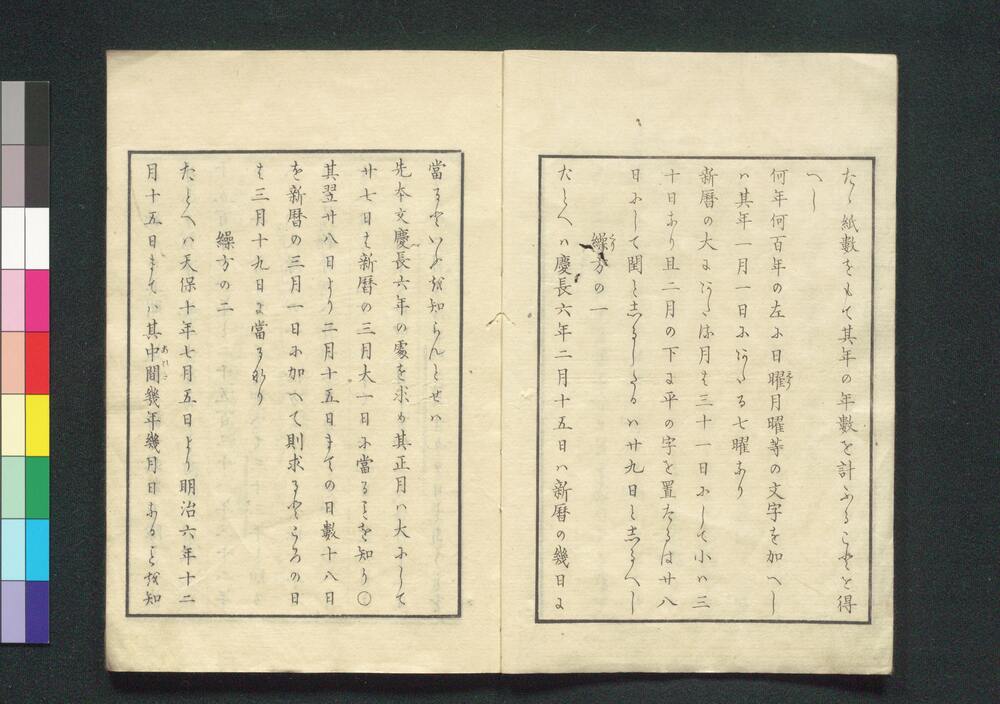 たゝ紙數をもて其年の年數を計ふることを得
へし
何年何百年の左に日曜月曜等の文字を加へし
ハ其年一月一日にあたる七曜なり
新暦の大にあたる月は三十一日にして小ハ三
十日なり且二月の下に平の字を置たるは廿八
日にして閏と志るしたるハ廿九日と志るへし
繰方の一
たとへハ慶長六年二月十五日ハ新暦の幾日に
當るといふを知らんとせハ
先本文慶長六年の處を求め其正月ハ大にして
廿七日は新暦の三月大一日に當ることを知り
其翌廿八日より二月十五日まての日數十八日
を新暦の三月一日に加へて則求るところの日
は三月十九日に當るなり
繰方の二
たとへハ天保十年七月五日より明治六年十二
月十五日まてハ其中間幾年幾月日なるを知